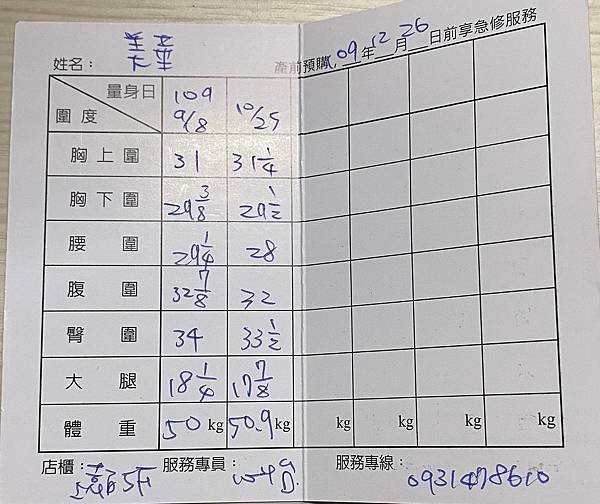 姓名： 美華
產前預購, 109年12月26日前享急修服務
量身日 圍度 109 9/8 10/25
胸上圍 31 31 1/4
胸下圍 29 3/8 29 1/2
腰圍 29 1/4 28
腹圍 32 7/8 32
臀圍 34 33 1/2
大腿 18 1/4 17 7/8
體重 50 kg 50.9 kg kg kg kg kg
店櫃： 服務專員： 服務專線： 0931478610